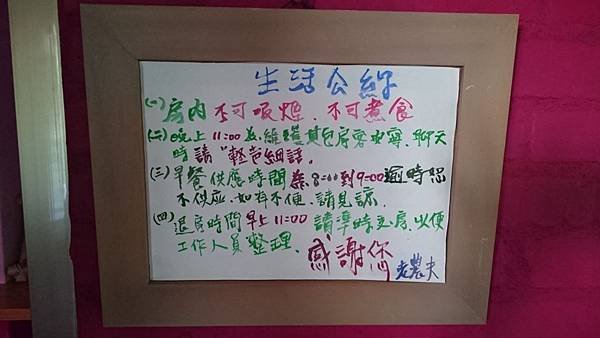 生活公約
(一)房內不可吸煙、不可煮食
(二)晚上11:00為維護其它房客安寧、聊天
時請"輕声細語。
(三)早餐供應時間為8:00到9:00逾時恕
不供应、如有不便、請見諒、
(四)退房時間早上11:00 請準時交房、以便
工作人員整理、
感謝您
老農夫